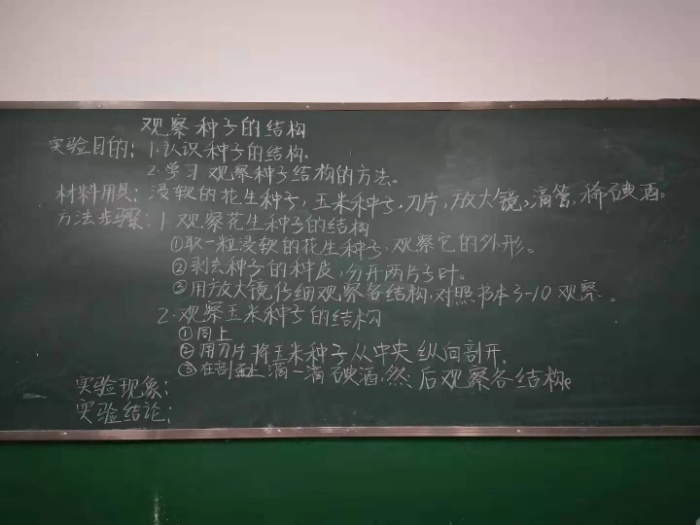 观察种子的结构
实验目的：1.认识种子的结构。
2.学习观察种子结构的方法。
材料用具：浸软的花生种子，玉米种子，刀片，放大镜，滴管，稀碘酒。
方法步骤：1 观察花生种子的结构
①取一粒浸软的花生种子，观察它的外形。
②剥去种子的种皮，分开两片子叶。
③用放大镜仔细观察各结构，对照书本3-10观察。
2.观察玉米种子的结构
①同上
②用刀片将玉米种子从中央纵向剖开。
③在剖面上滴一滴碘酒，然后观察各结构。
实验现象：
实验结论：